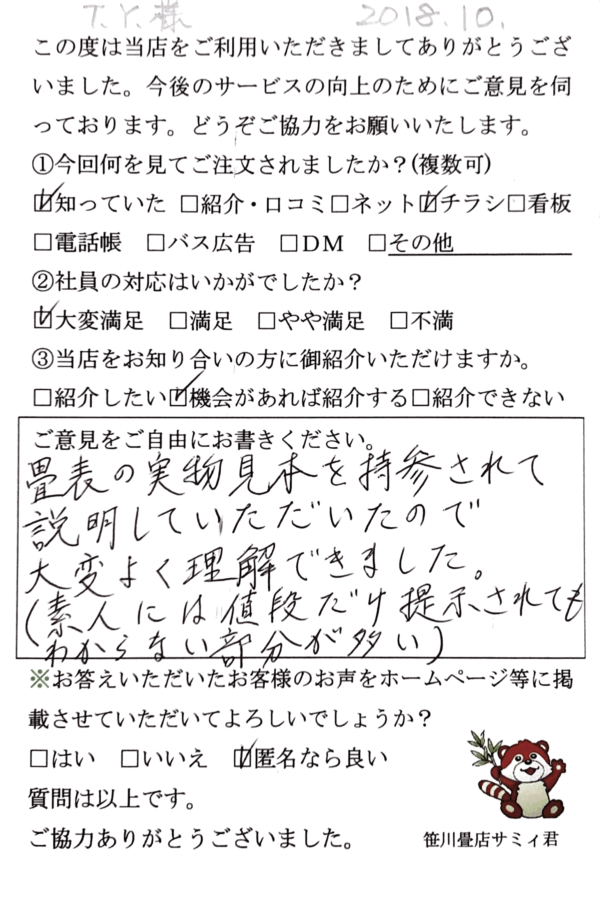 T.Y.様 2018.10.
この度は当店をご利用いただきましてありがとうござ
いました。今後のサービスの向上のためにご意見を伺
っております。どうぞご協力をお願いいたします。
①今回何を見てご注文されましたか？(複数可)
☑知っていた □紹介・口コミ□ネット☑チラシ□看板
□電話帳 □バス広告 □DM □その他
②社員の対応はいかがでしたか？
☑大変満足 □満足 □やや満足 □不満
③当店をお知り合いの方に御紹介いただけますか。
□紹介したい☑機会があれば紹介する□紹介できない
ご意見をご自由にお書きください。
畳表の実物見本を持参されて
説明していただいたので
大変よく理解できました。
(素人には値段だけ提示されても
わからない部分が多い)
※お答えいただいたお客様のお声をホームページ等に掲
載させていただいてよろしいでしょうか？
□はい □いいえ ☑匿名なら良い
質問は以上です。
ご協力ありがとうございました。
笹川畳店サミィ君